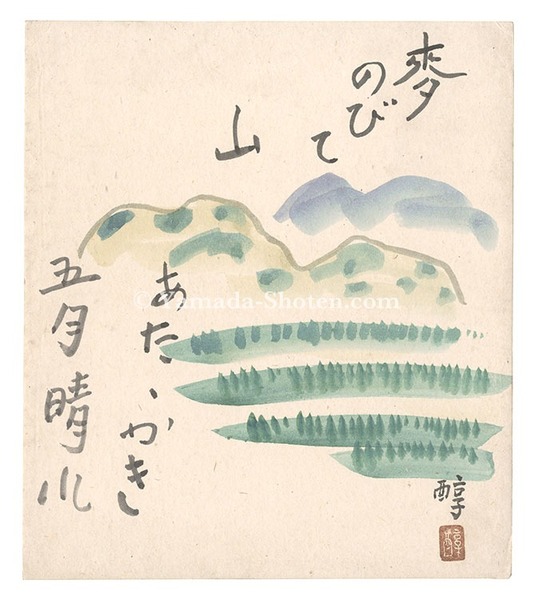 麦
のびて
山
あたゝかき
五月晴れ
醇
© Yamada-Shoten.com